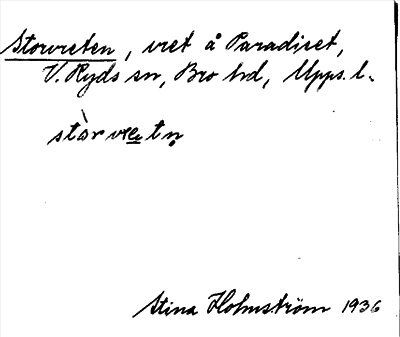 Storvreten, vret å Paradiset,
V. Ryds sn, Bro hd, Upps. l.
stòrvretn̥
Stina Holmström 1936